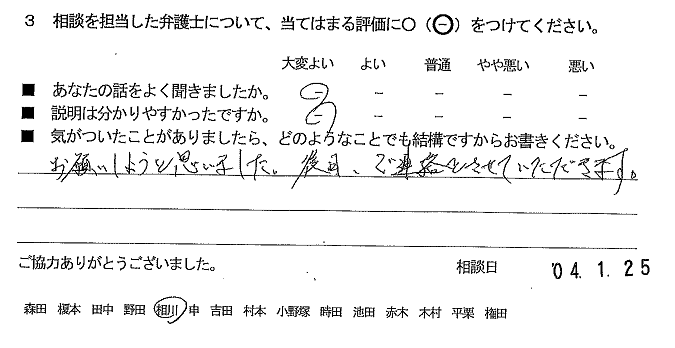 3 相談を担当した弁護士について、当てはまる評価に○(⊖)をつけてください。
大変よい よい 普通 やや悪い 悪い
■ あなたの話をよく聞きましたか。 - - - - -
■ 説明は分かりやすかったですか。 - - - - -
■ 気がついたことがありましたら、どのようなことでも結構ですからお書きください。
お願いしようと思いました。後日、ご連絡をさせていただきます。
ご協力ありがとうございました。 相談日 '04.1.25
森田 榎本 田中 野田 相川 申 吉田 村本 小野塚 時田 池田 赤木 木村 平栗 権田